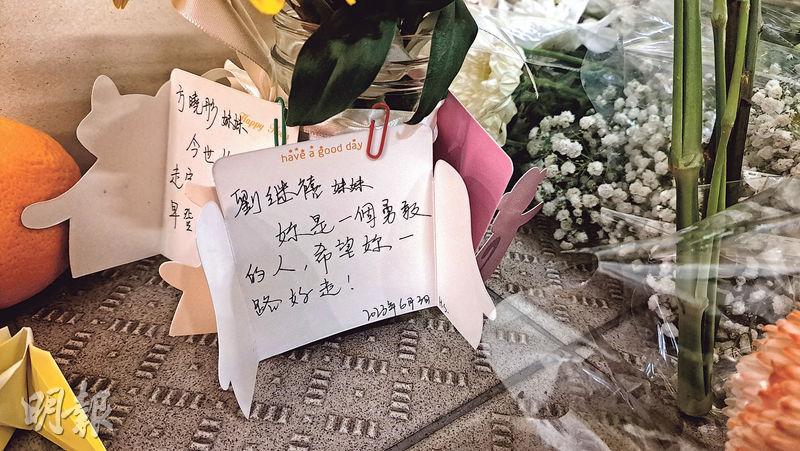 方曉彤妹妹
Happy
今世
走
早登
have a good day
劉继禧妹妹
妳是一個勇敢
的人,希望妳一
路好走!
2023年6月3日
明報